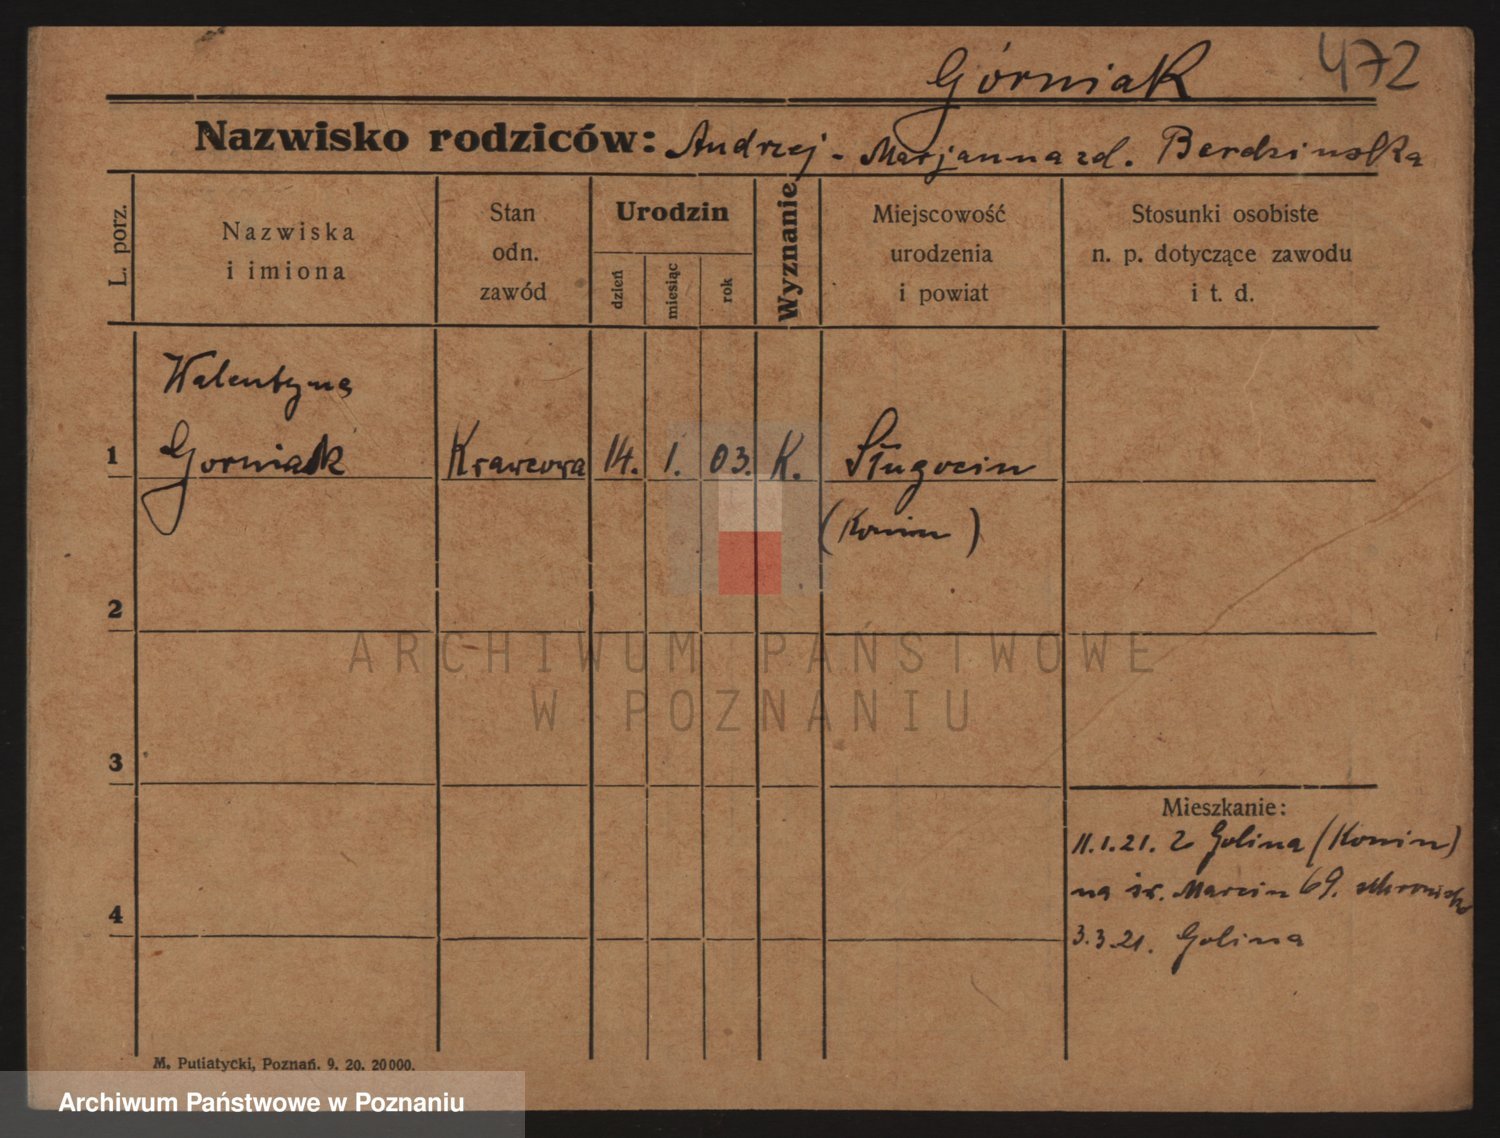 472
Górniak
Nazwisko rodziców: Andrzej - Marjanna zd. Berdzinska
L. porz.
Nazwiska
i imiona
Stan
odn.
zawód
Urodzin
dzień
miesiąc
rok
Wyznanie
Miejscowość
urodzenia
i powiat
Stosunki osobiste
n. p. dotyczące zawodu
i t. d.
Walentyna
1 Gorniak Krawcowa 14. 1. 03. K. Sługocin
(Konin)
2
ARCHIWUM PAŃSTWOWE
W POZNANIU
3
Mieszkanie:
11.1.21. z Golina (Konin)
na św. Marcin 69. schronisko
4
3.3.21. Golina
M. Putiatycki, Poznań. 9. 20. 20000.
Archiwum Państwowe w Poznaniu